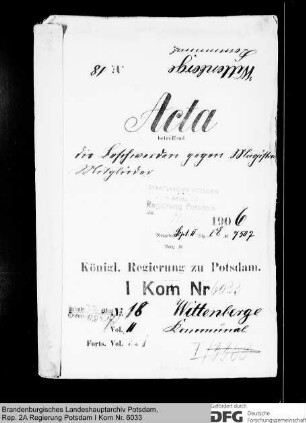 Wittenberge
Kommunal
N. 18
Acta
betreffend
die Beschwerden gegen Magistrats
Mitglieder
Regierung Potsdam
1906
Königl. Regierung zu Potsdam.
I Kom Nr 6033
18 Wittenberge
Vol. II Kommunal
Forts. Vol.
Brandenburgisches Landeshauptarchiv Potsdam,
Rep. 2A Regierung Potsdam I Kom Nr. 6033
Gefördert durch
DFG Deutsche
Forschungsgemeinschaft